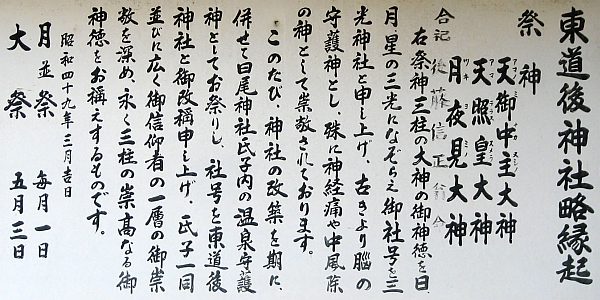 東道後神社略縁起
祭神
天御中主大神
天照皇大神
月夜見大神
合記 後藤信正翁命
右祭神三柱の大神の御神徳を日
月星の三光になぞらえ御社号を三
光神社と申し上げ、古きより脳の
守護神とし、殊に神経痛や中風除
の神として崇敬されております。
このたび、神社の改築を期に、
併せて日尾神社氏子内の温泉守護
神としてお祭りし、社号を東道後
神社と御改稱申し上げ、氏子一同
並びに広く御信仰者の一層の御崇
敬を深め、永く三柱の崇高なる御
神徳をお稱えするものです。
昭和四十九年三月吉日
月並祭 毎月一日
大祭 五月三日